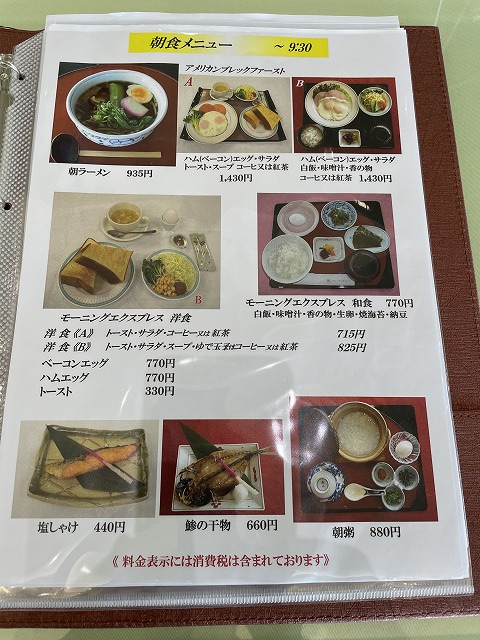 朝食メニュー ～ 9:30
アメリカンブレックファースト
A
B
朝ラーメン 935円
ハム(ベーコン)エッグ・サラダ
トースト・スープ コーヒ又は紅茶
1,430円
ハム(ベーコン)エッグ・サラダ
白飯・味噌汁・香の物
コーヒ又は紅茶 1,430円
B
モーニングエクスプレス 洋食
モーニングエクスプレス 和食 770円
白飯・味噌汁・香の物・生卵・焼海苔・納豆
洋食《A》 トースト・サラダ・コーヒー又は紅茶 715円
洋食《B》 トースト・サラダ・スープ・ゆで玉子はコーヒー又は紅茶 825円
ベーコンエッグ 770円
ハムエッグ 770円
トースト 330円
塩しゃけ 440円
鯵の干物 660円
朝粥 880円
《 料金表示には消費税は含まれております》